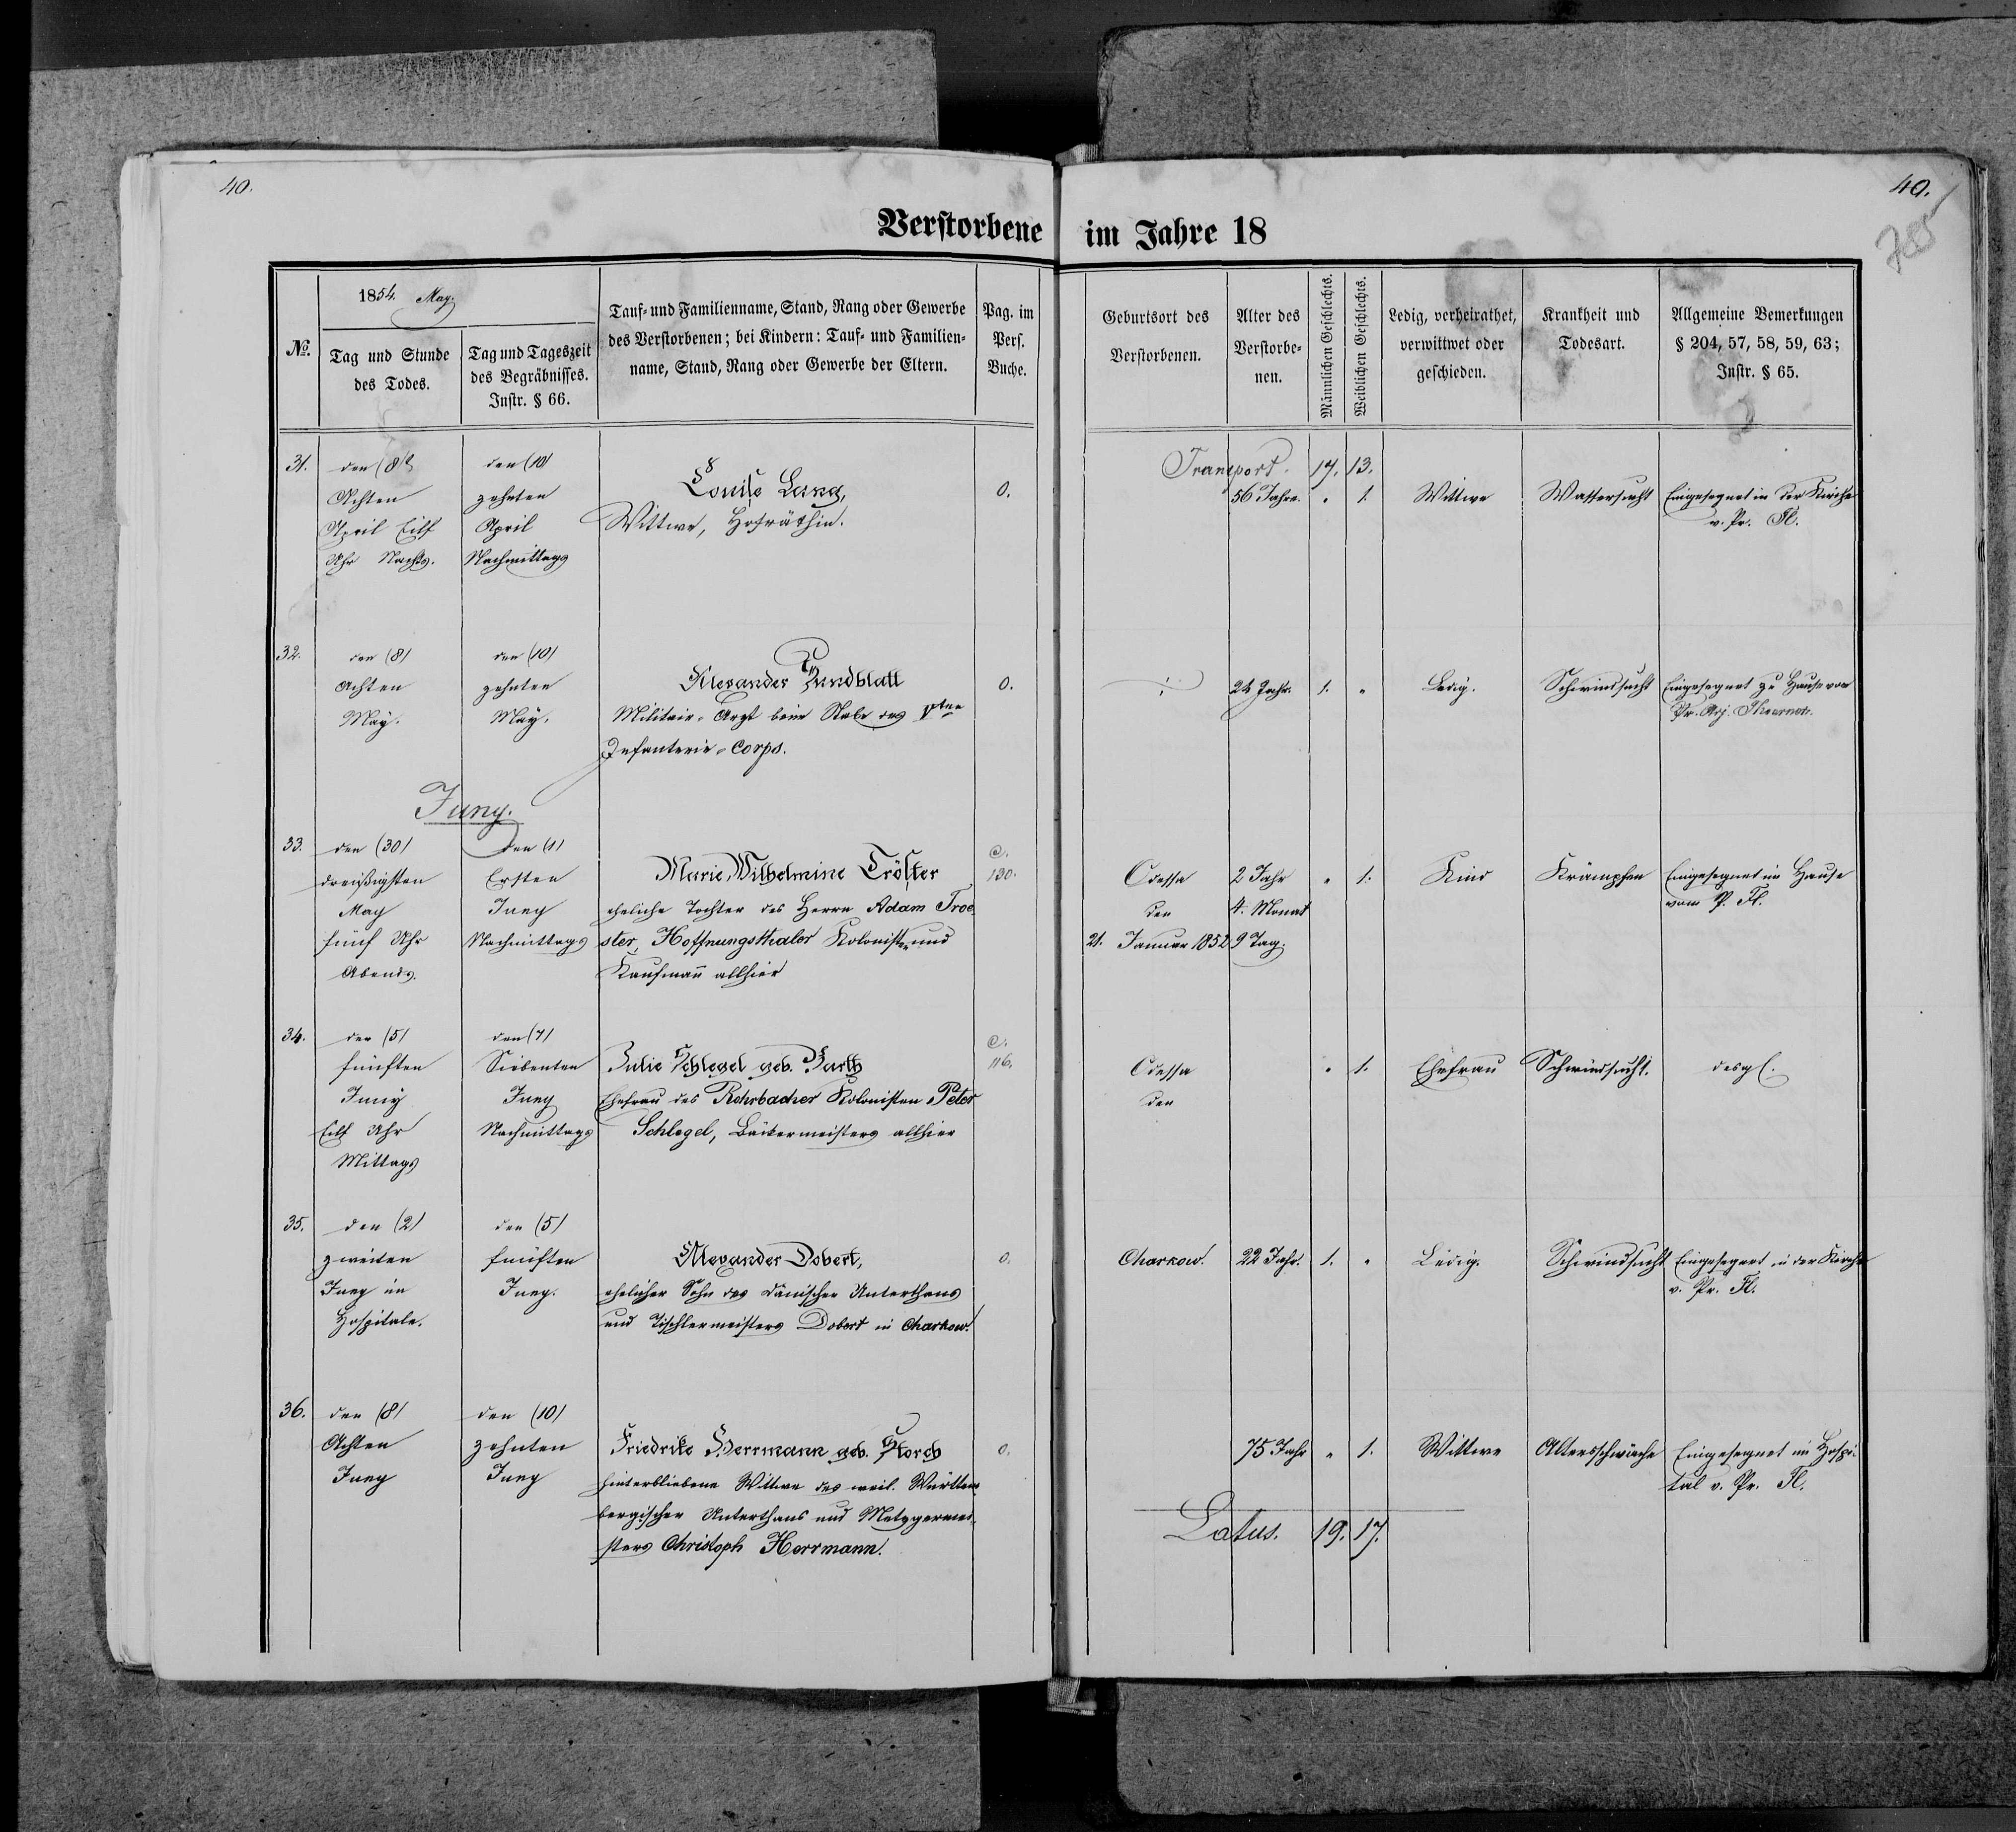 40.
40.
Verstorbene im Jahre 18
1854. May.
№.
Tag und Stunde
des Todes.
Tag und Tageszeit
des Begräbnisses.
Instr. § 66.
Tauf- und Familienname, Stand, Rang oder Gewerbe
des Verstorbenen; bei Kindern: Tauf- und Familien-
name, Stand, Rang oder Gewerbe der Eltern.
Pag. im
Pers.
Buche.
Geburtsort des
Verstorbenen.
Alter des
Verstorbe-
nen.
Männlichen Geschlechts.
Weiblichen Geschlechts.
Ledig, verheirathet,
verwittwet oder
geschieden.
Krankheit und
Todesart.
Allgemeine Bemerkungen
§ 204, 57, 58, 59, 63;
Instr. § 65.
Transport. 17. 13.
31.
den (8)
Achten
April Eilf
Uhr Nachts.
den (10)
zehnten
April
Nachmittags
Louise Lang,
Wittwe, Hofräthin.
0.
56 Jahre.
" 1.
Wittwe
Wassersucht
Eingesegnet in der Kirche
v. Pr. Fl.
32.
den (8)
Achten
May.
den (10)
zehnten
May.
Alexander
Militair-Arzt beim Stabe des Vten
Infanterie-Corps.
0.
1. "
Ledig.
Schwindsucht
Eingesegnet zu Hause von
Pr. Adj.
Juny.
33.
den (30)
dreißigsten
May
fünf Uhr
Abends.
den (1)
Ersten
Juny
Nachmittags
Marie Wilhelmine Tröster
eheliche Tochter des Herrn Adam Troe-
ster, Hoffnungsthaler Kolonisten und
Kaufmañ allhier
C.
130.
Odessa
den
21. Januar 1852
2 Jahr
4. Monat
9 Tag.
" 1.
Kind
Krämpfen
Eingesegnet im Hause
vom P. Fl.
34.
den (5)
fünften
Juny
Eilf Uhr
Mittags
den (7)
Siebenten
Juny
Nachmittags
Julie Schlegel geb. Barth
Ehefrau des Rohrbacher Kolonisten Peter
Schlegel, Bäckermeisters allhier
C.
116.
Odessa
den
" 1.
Ehefrau
Schwindsucht.
desgl.
35.
den (2)
zweiten
Juny im
Hospitale.
den (5)
fünften
Juny.
Alexander Dobert,
ehelicher Sohn des Dänischen Unterthans
und Tischlermeisters Dobert in Charkow.
0.
Charkow.
22 Jahr.
1. "
Ledig.
Schwindsucht
Eingesegnet in der Kirche
v. Pr. Fl.
36.
den (8)
Achten
Juny
den (10)
zehnten
Juny
Friedrike Herrmann geb. Storch
hinterbliebene Wittwe des weil. Württem-
bergischen Unterthans und Metzgermei-
sters Christoph Herrmann.
0.
75 Jahr
" 1.
Wittwe
Altersschwäche
Eingesegnet im Hospi-
tal v. Pr. Fl.
Latus. 19. 17.